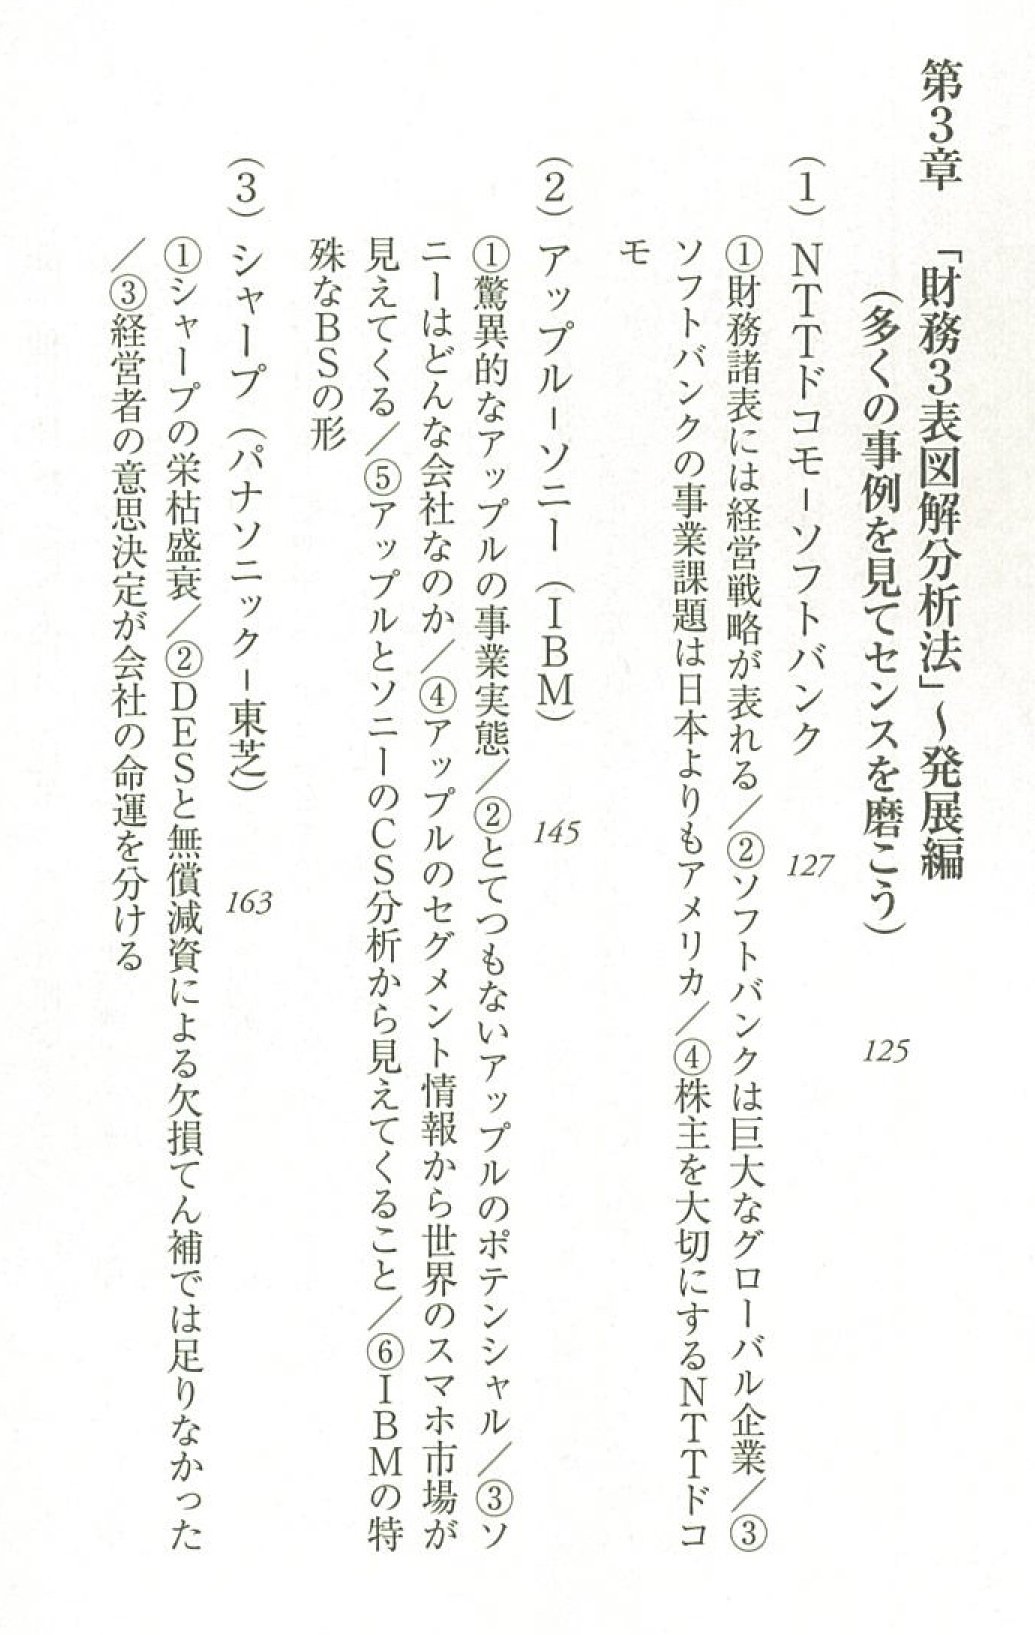 第3章 「財務3表図解分析法」～発展編
（多くの事例を見てセンスを磨こう） 125
（1） NTTドコモ－ソフトバンク 127
①財務諸表には経営戦略が表れる／②ソフトバンクは巨大なグローバル企業／③
ソフトバンクの事業課題は日本よりもアメリカ／④株主を大切にするNTTドコ
モ
（2） アップル－ソニー（IBM） 145
①驚異的なアップルの事業実態／②とてつもないアップルのポテンシャル／③ソ
ニーはどんな会社なのか／④アップルのセグメント情報から世界のスマホ市場が
見えてくる／⑤アップルとソニーのCS分析から見えてくること／⑥IBMの特
殊なBSの形
（3） シャープ（パナソニック－東芝） 163
①シャープの栄枯盛衰／②DESと無償減資による欠損てん補では足りなかった
／③経営者の意思決定が会社の命運を分ける